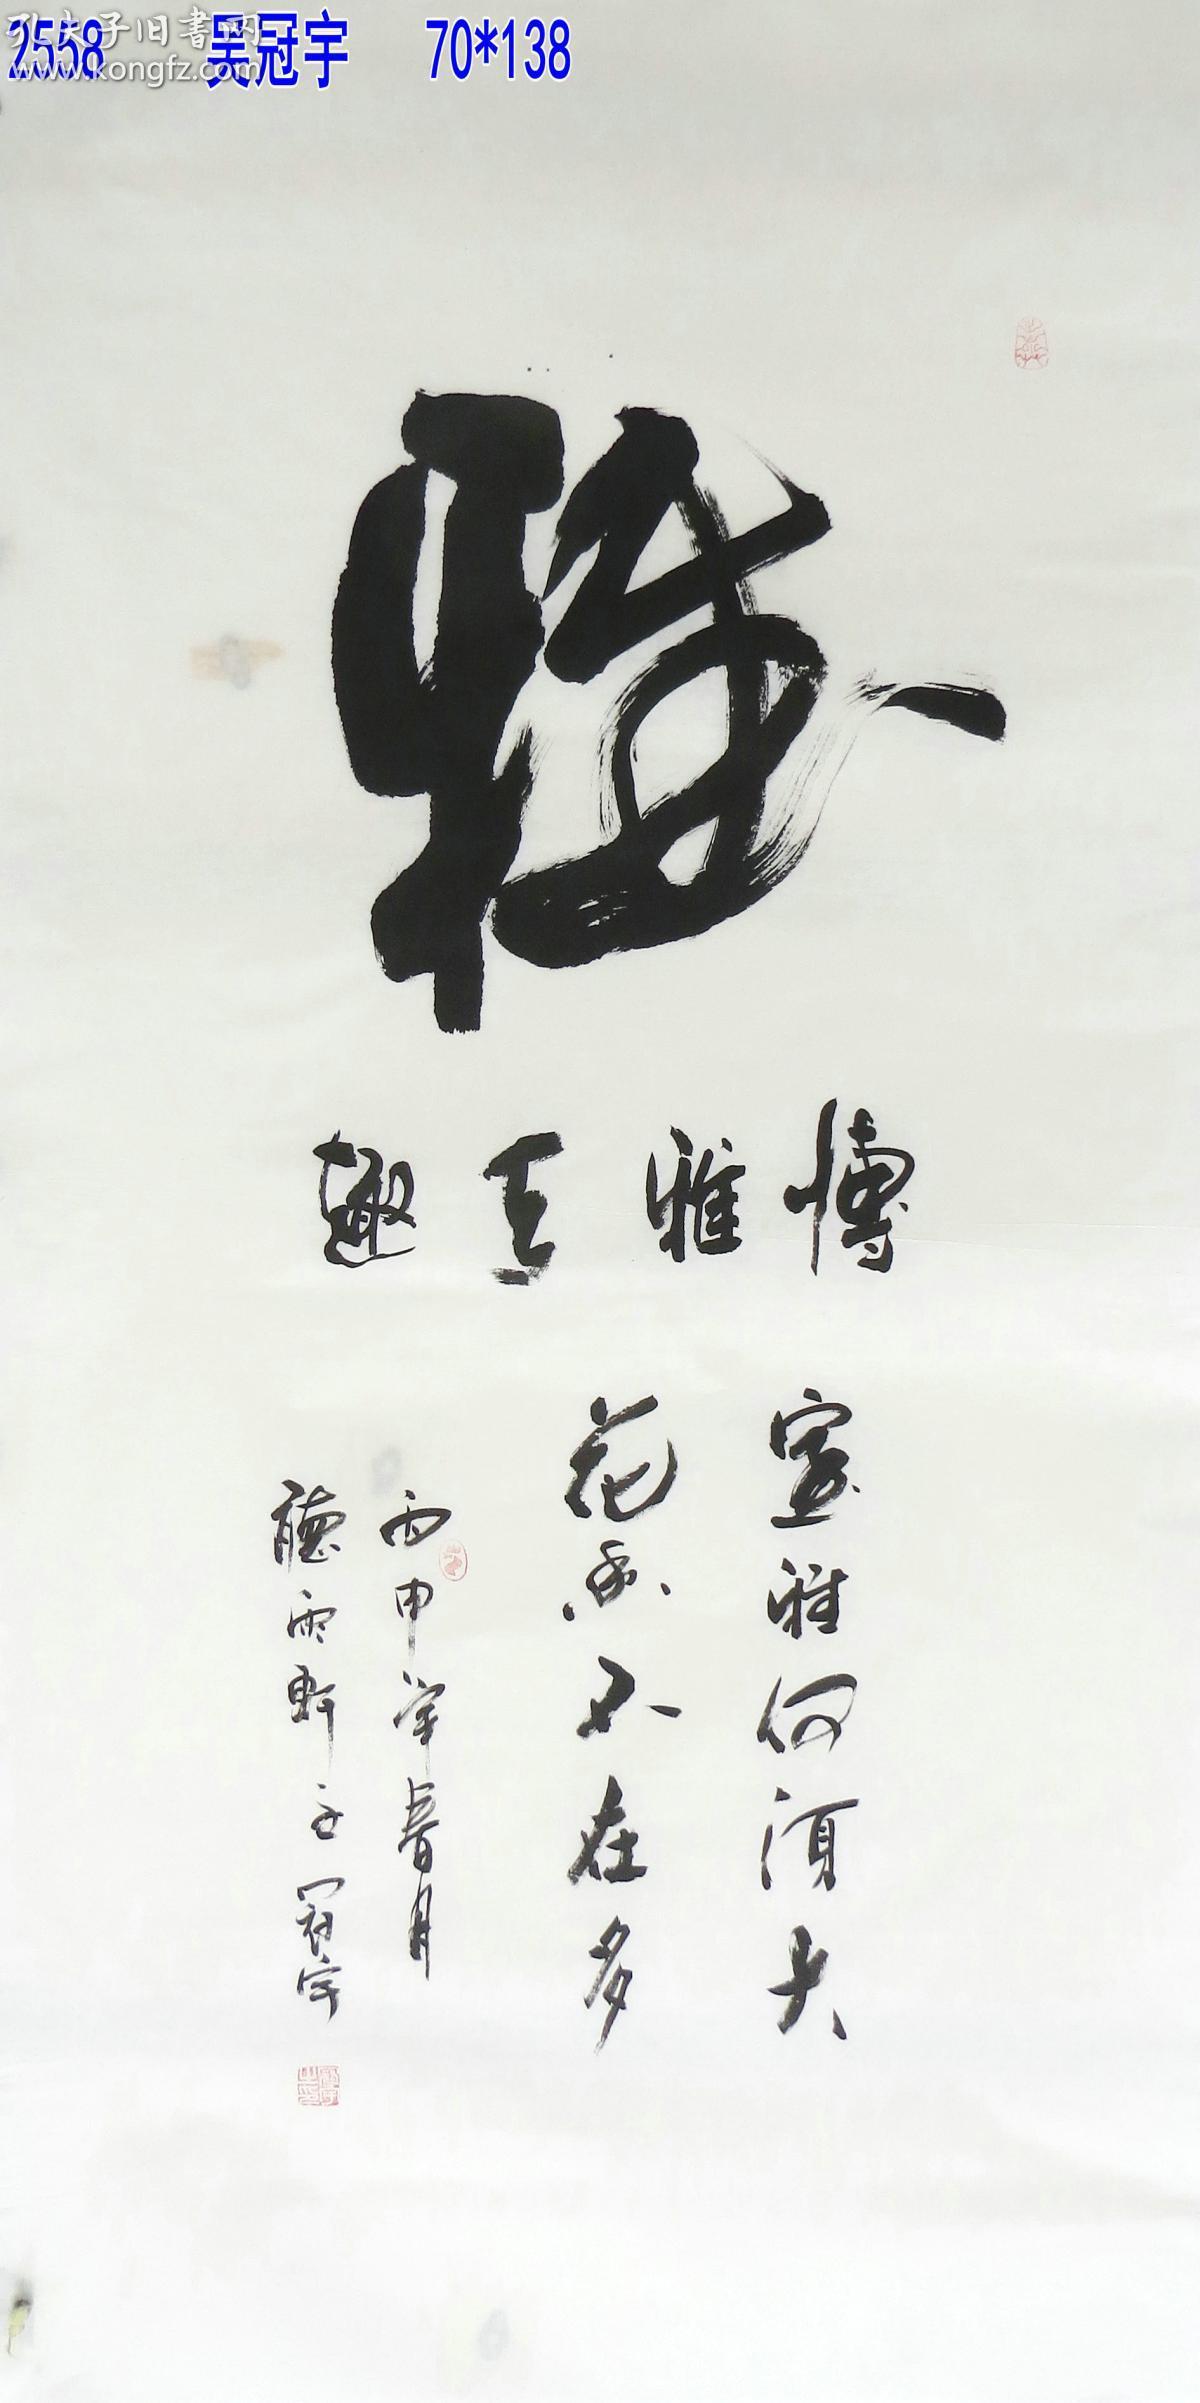 2558 吴冠宇 70*138
孔夫子旧书网
www.kongfz.com
雅
博雅天趣
室雅何須大
花香不在多
丙申年春月
聽雨軒主冠宇